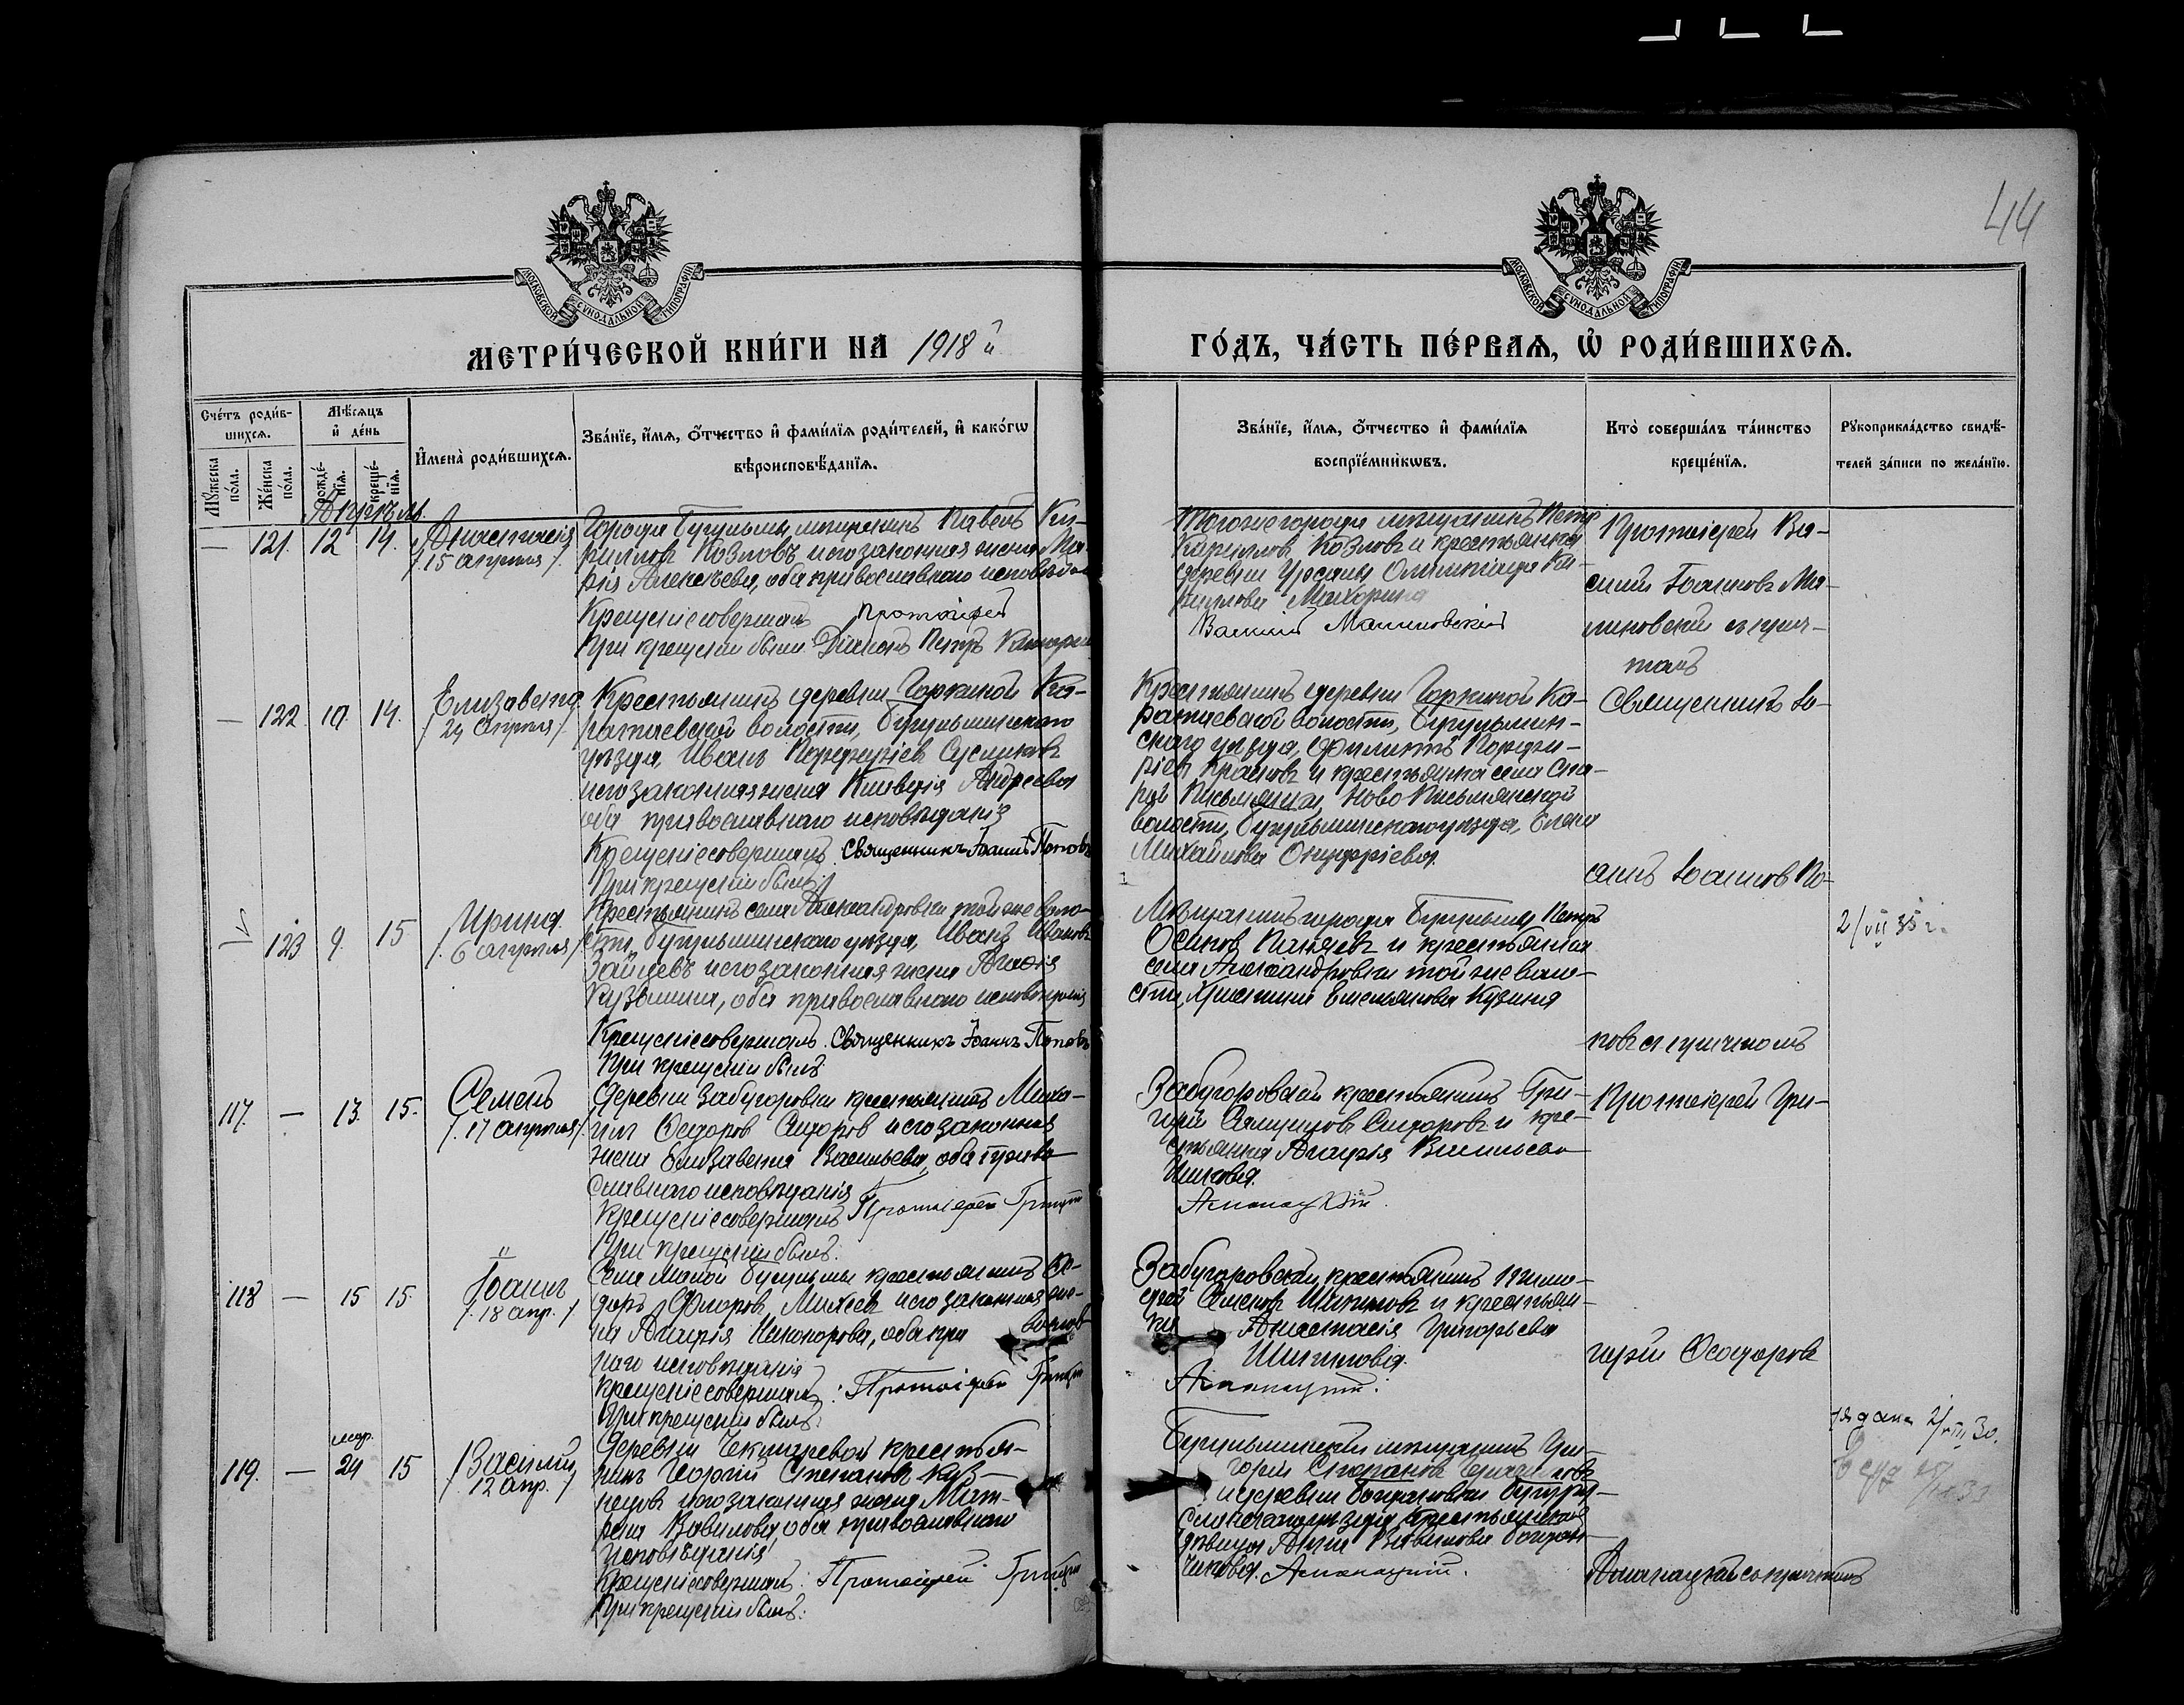 44
МОСКОВСКОЙ СѴНОДАЛЬНОЙ ТИПОГРАФІИ
МОСКОВСКОЙ СѴНОДАЛЬНОЙ ТИПОГРАФІИ
МЕТРИ́ЧЕСКОЙ КНИ́ГИ НА 1918 й
ГО́ДЪ, ЧА́СТЬ ПЕ́РВАѦ, Ѡ҆ РОДИ́ВШИХСѦ.
Сче́тъ роди́в-
шихсѧ.
Мѣ́сѧцъ
и҆ де́нь
И҆мена̀ роди́вшихсѧ.
Зва́нїе, и҆́мѧ, о҆́тчество и҆ фами́лїѧ роди́телей, и҆ како́гѡ
вѣроисповѣ́данїѧ.
Мꙋ́жеска
по́ла.
Же́нска
по́ла.
рожде́-
нїѧ.
креще́-
нїѧ.
Зва́нїе, и҆́мѧ, о҆́тчество и҆ фами́лїѧ
воспрїе́мникѡвъ.
Кто̀ соверша́лъ та́инство
креще́нїѧ.
Рꙋкоприкла́дство свидѣ́-
телей за́писи по жела́нїю.
Апрѣль.
— 121. 12 14. Анастасія
/. 15 апрѣля ./
Города Бугульмы мѣщанинъ Павелъ Ки-
рилловъ Козловъ и его законная жена Ма-
рія Алексѣева, оба православнаго исповѣдан
Крещеніе совершалъ Протоіерей
При крещеніи былъ Діаконъ Петръ
Того же города мѣщанинъ Петръ
Кирилловъ Козловъ и крестьянка
деревни Урсалы Олимпіада Ки-
риллова
Василій Малиновскій
Протоіерей Ва-
силій Іоанновъ Ма-
линовскій съ прич-
томъ
— 122. 10. 14. Елизавета
/ 24 Апрѣля /
Крестьянинъ деревни Горкиной Ка-
ратаевской волости, Бугульминскаго
уѣзда, Иванъ Порфиріевъ Сусликовъ
и его законная жена Клавдія Андреева
оба православнаго исповѣданія
Крещеніе совершалъ Священникъ Іоаннъ Поповъ
При крещеніи былъ:
Крестьянинъ деревни Горкиной Ка-
ратаевской волости, Бугульмин-
скаго уѣзда, Филиппъ Порфи-
ріевъ Красновъ и крестьянка села Ста-
рой Письмянки, Ново Письмянской
волости, Бугульминскаго уѣзда, Елена
Михайлова Онуфріева.
Священникъ Іо-
аннъ Іоанновъ По-
повъ съ причтомъ
— 123 9. 15 Ирина.
/. 6 апрѣля /
Крестьянинъ села Александровки той же воло-
сти, Бугульминскаго уѣзда, Иванъ Ивановъ
Зайцевъ и его законная жена Агаѳія
Кузьмина, оба православнаго исповѣданія
Крещеніе совершалъ. Священникъ Іоаннъ Поповъ
При крещеніи былъ
Мѣщанинъ города Бугульмы Петръ
Осиповъ и крестьянка
села Александровки той же воло-
сти, Емельянова Кузина
2/VII 35 г.
117. — 13. 15. Семенъ
/. 17 апрѣля /.
Деревни Забугоровки крестьянинъ Миха-
илъ Ѳедоровъ Сидоровъ и его законная
жена Елизавета Васильева, оба право
славнаго исповѣданія
Крещеніе совершалъ Протоіерей Григорій
При крещеніи былъ:
Забугоровскій крестьянинъ Гри-
горій Сидоровъ и кре-
стьянка Агафія Васильева
Аманацкій.
Протоіерей Гри-
горій Ѳеодоровъ
Аманацкій съ причтомъ
118 — 15 15. Іоаннъ
/. 18 апр. /
Села Малой Бугульмы крестьянинъ Ѳе-
доръ Флоровъ Михеевъ и его законная же-
на Агафія Никонорова, оба пра вослав
наго исповѣданія
Крещеніе совершалъ: Протоіерей Григорій
При крещеніи былъ:
Забугоровскій крестьянинъ Тимо-
фей Семеновъ Шишловъ и крестьян-
ка Анастасія Григорьева
Шишлова.
Аманацкій.
119. — мар. 24 15 Василій
/. 12 апр. /
Деревни Чекмаревой крестья-
нинъ Георгій Степановъ Куз-
нецовъ и его законная жена Мат-
рена Вавилова, оба православнаго
исповѣданія
Крещеніе совершалъ: Протоіерей Григорій
При крещеніи былъ:
Бугульминскій мѣщанинъ Гри-
горій Степановъ
и деревни Бугуру-
сланскаго уѣзда крестьянская
дѣвица Анна Вавилова
Аманацкій.
2/VIII 30.